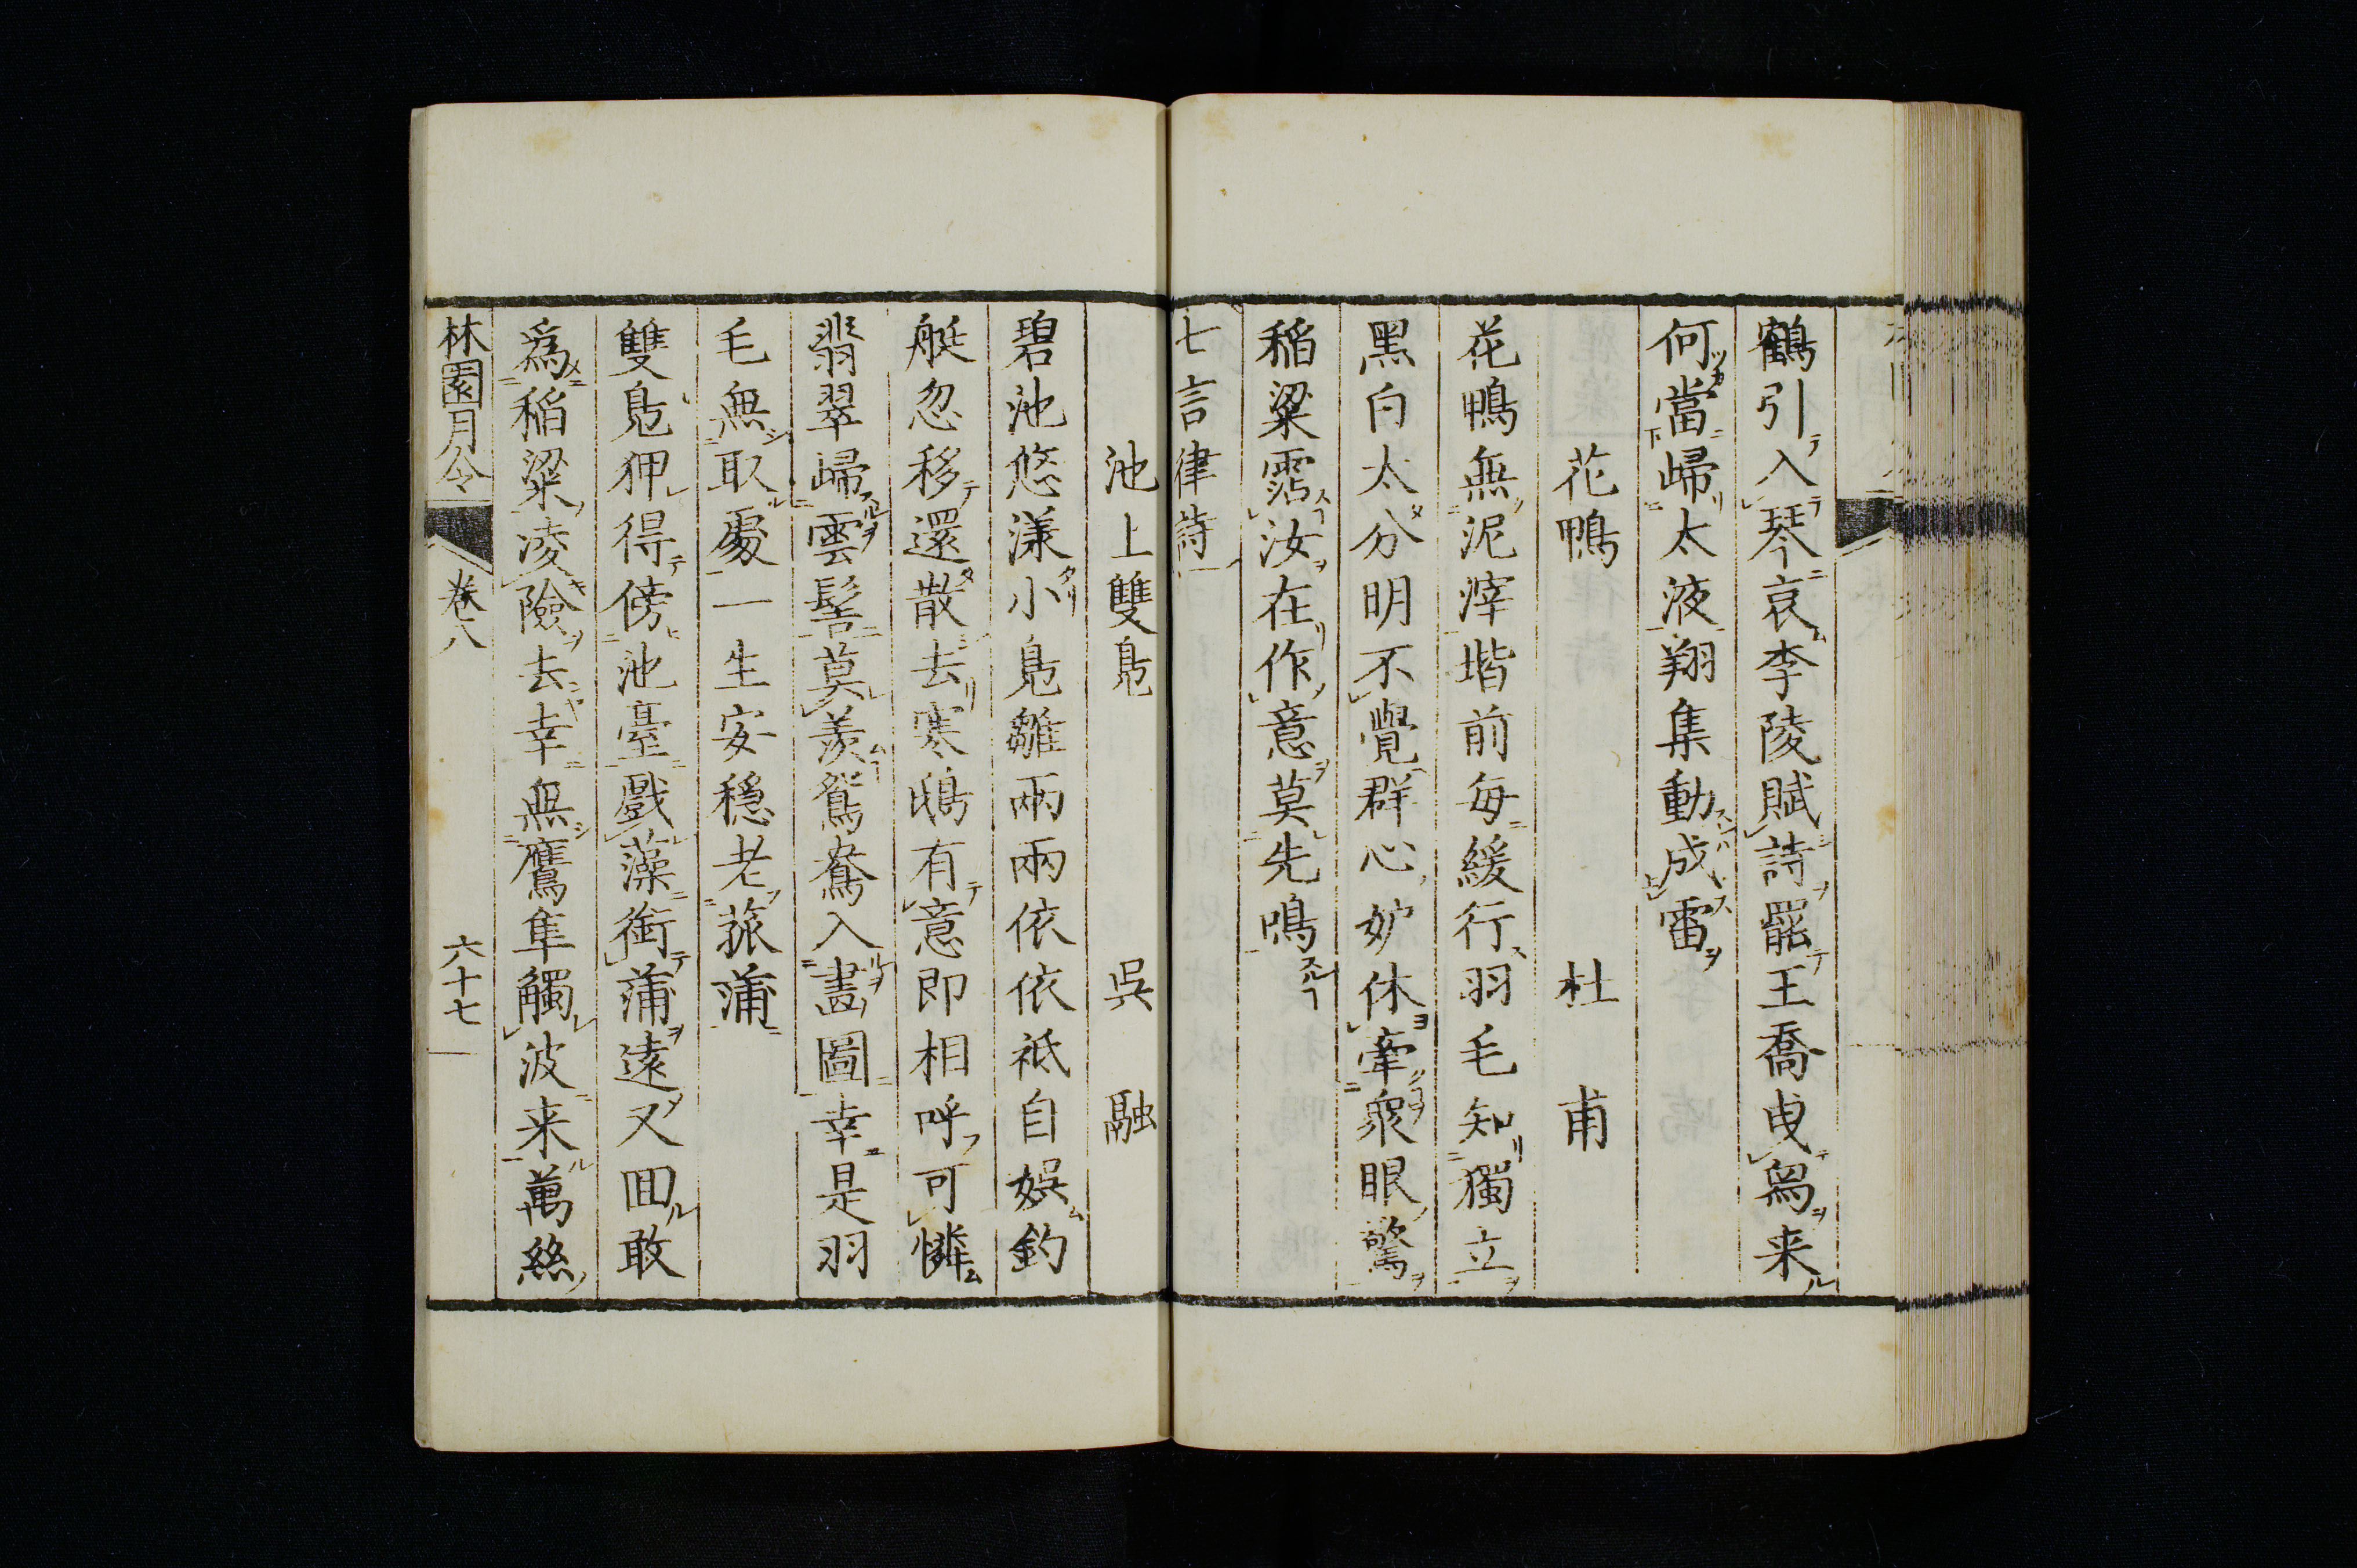 鶴引入琴哀李陵賦詩罷王喬曳舄来
何當歸太液翔集動成雷
花鴨 杜甫
花鴨無泥滓堦前毎緩行羽毛知獨立
黒白太分明不覺群心妒休牽衆眼驚
稲粱霑汝在作意莫先鳴
七言律詩
池上雙鳧 呉融
碧池悠漾小鳧雛兩兩依依祗自娯釣
艇忽移還散去寒鴟有意即相呼可憐
翡翠歸雲髻莫羨鴛鴦入畫圖幸是羽
毛無取處一生安穏老菰蒲
雙鳧狎得傍池臺戲藻銜蒲遠又囬敢
爲稲粱凌險去幸無鷹隼觸波来萬絲
林園月令 卷八 六十七